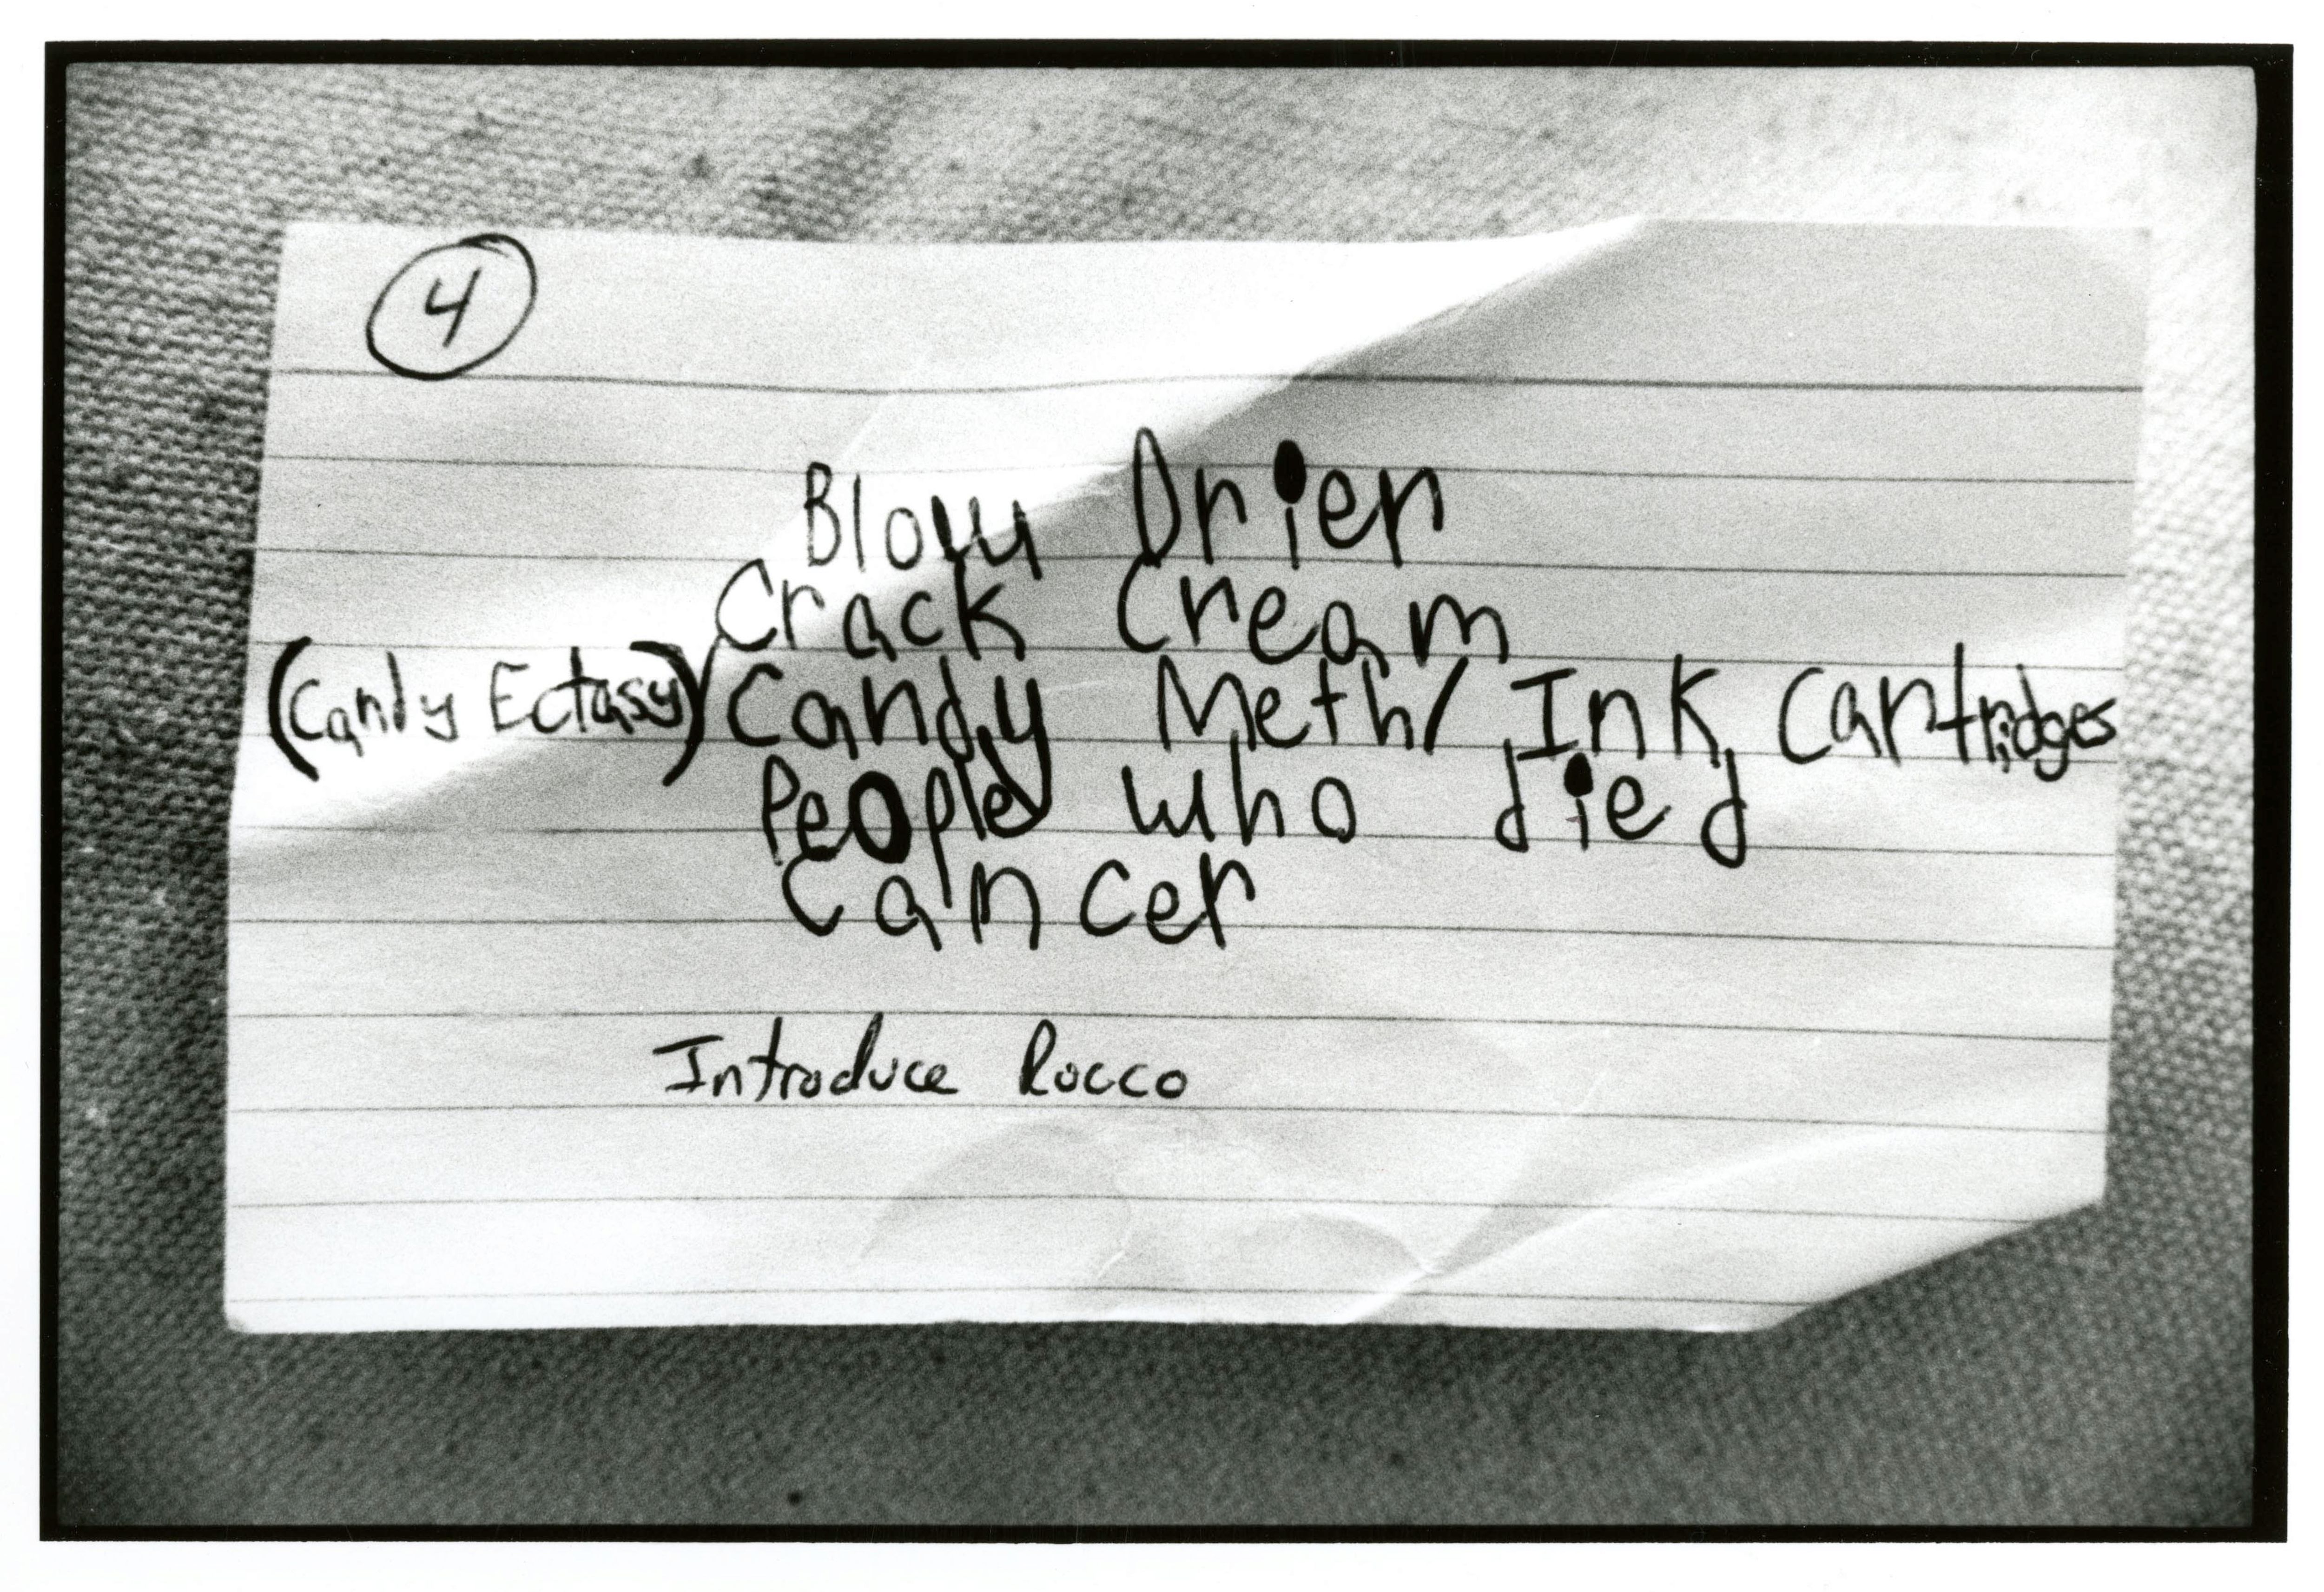 4
Blow Drier
Crack Cream
(Candy Ectasy) Candy Meth/ Ink Cartridges
People who died
Cancer
Introduce Rocco